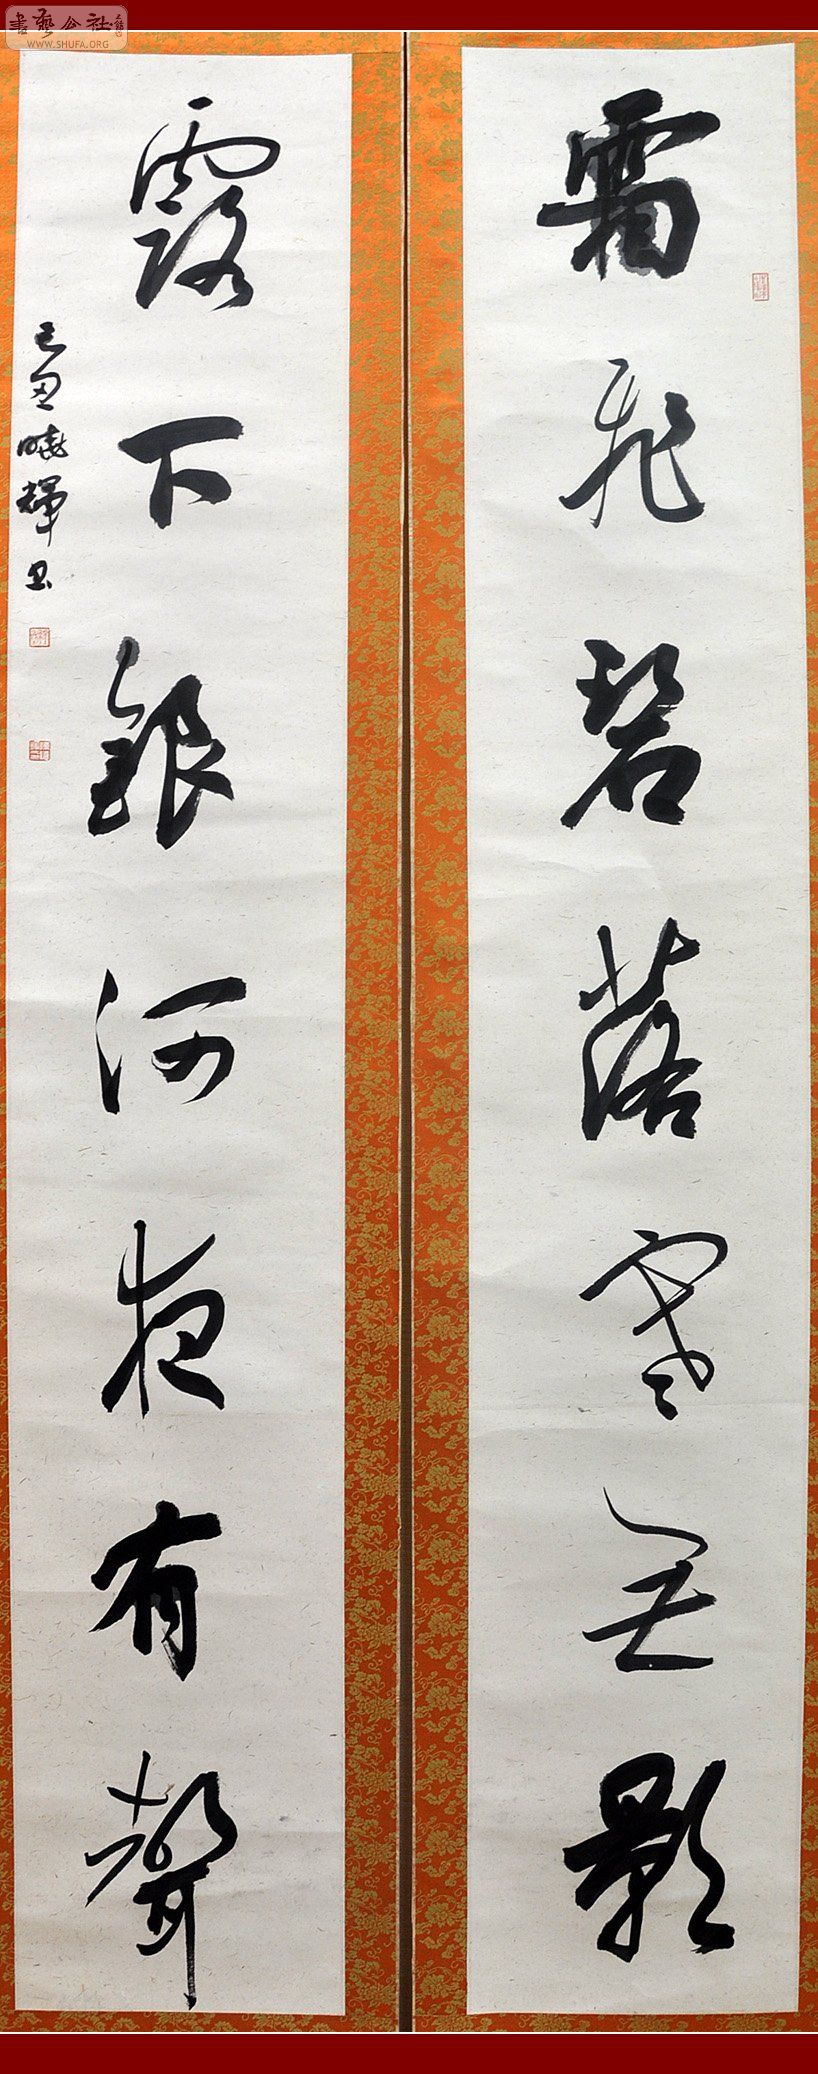 霜飛碧落寒無影
露下銀河夜有聲
己丑曉輝書
書藝公社
WWW.SHUFA.ORG